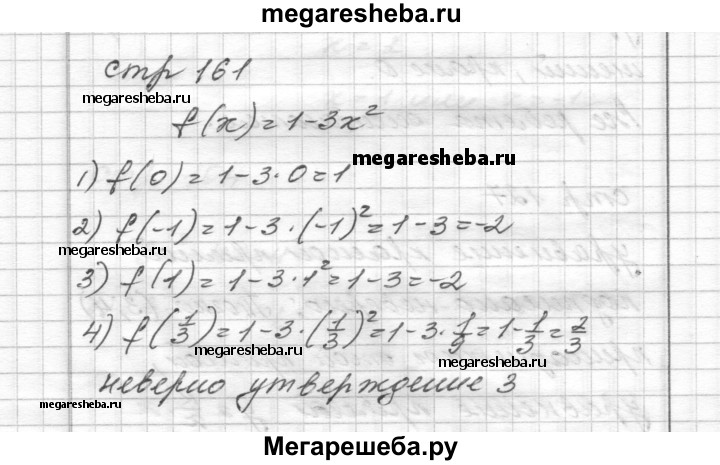 megaresheba.ru
стр 161
megaresheba.ru
f(x)=1-3x²
megaresheba.ru
1) f(0)=1-3·0=1
2) f(-1)=1-3·(-1)²=1-3=-2
megaresheba.ru
3) f(1)=1-3·1²=1-3=-2
4) f(1/3)=1-3·(1/3)²=1-3·1/9=1-1/3=2/3
megaresheba.ru
megaresheba.ru
неверно утверждение 3
megaresheba.ru
Мегарешеба.ру